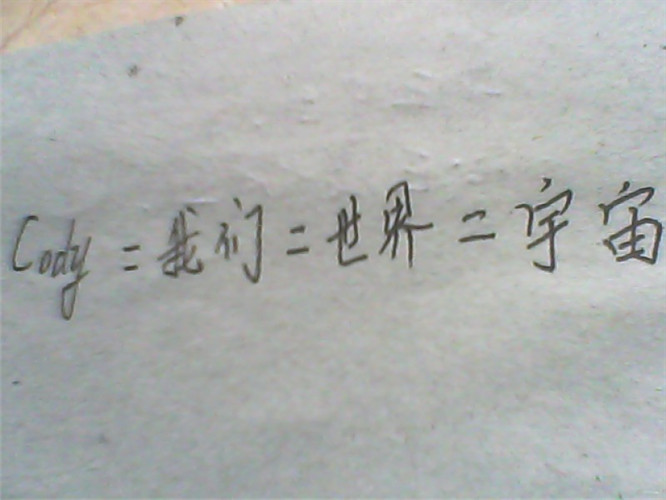 Cody = 我们 = 世界 = 宇宙